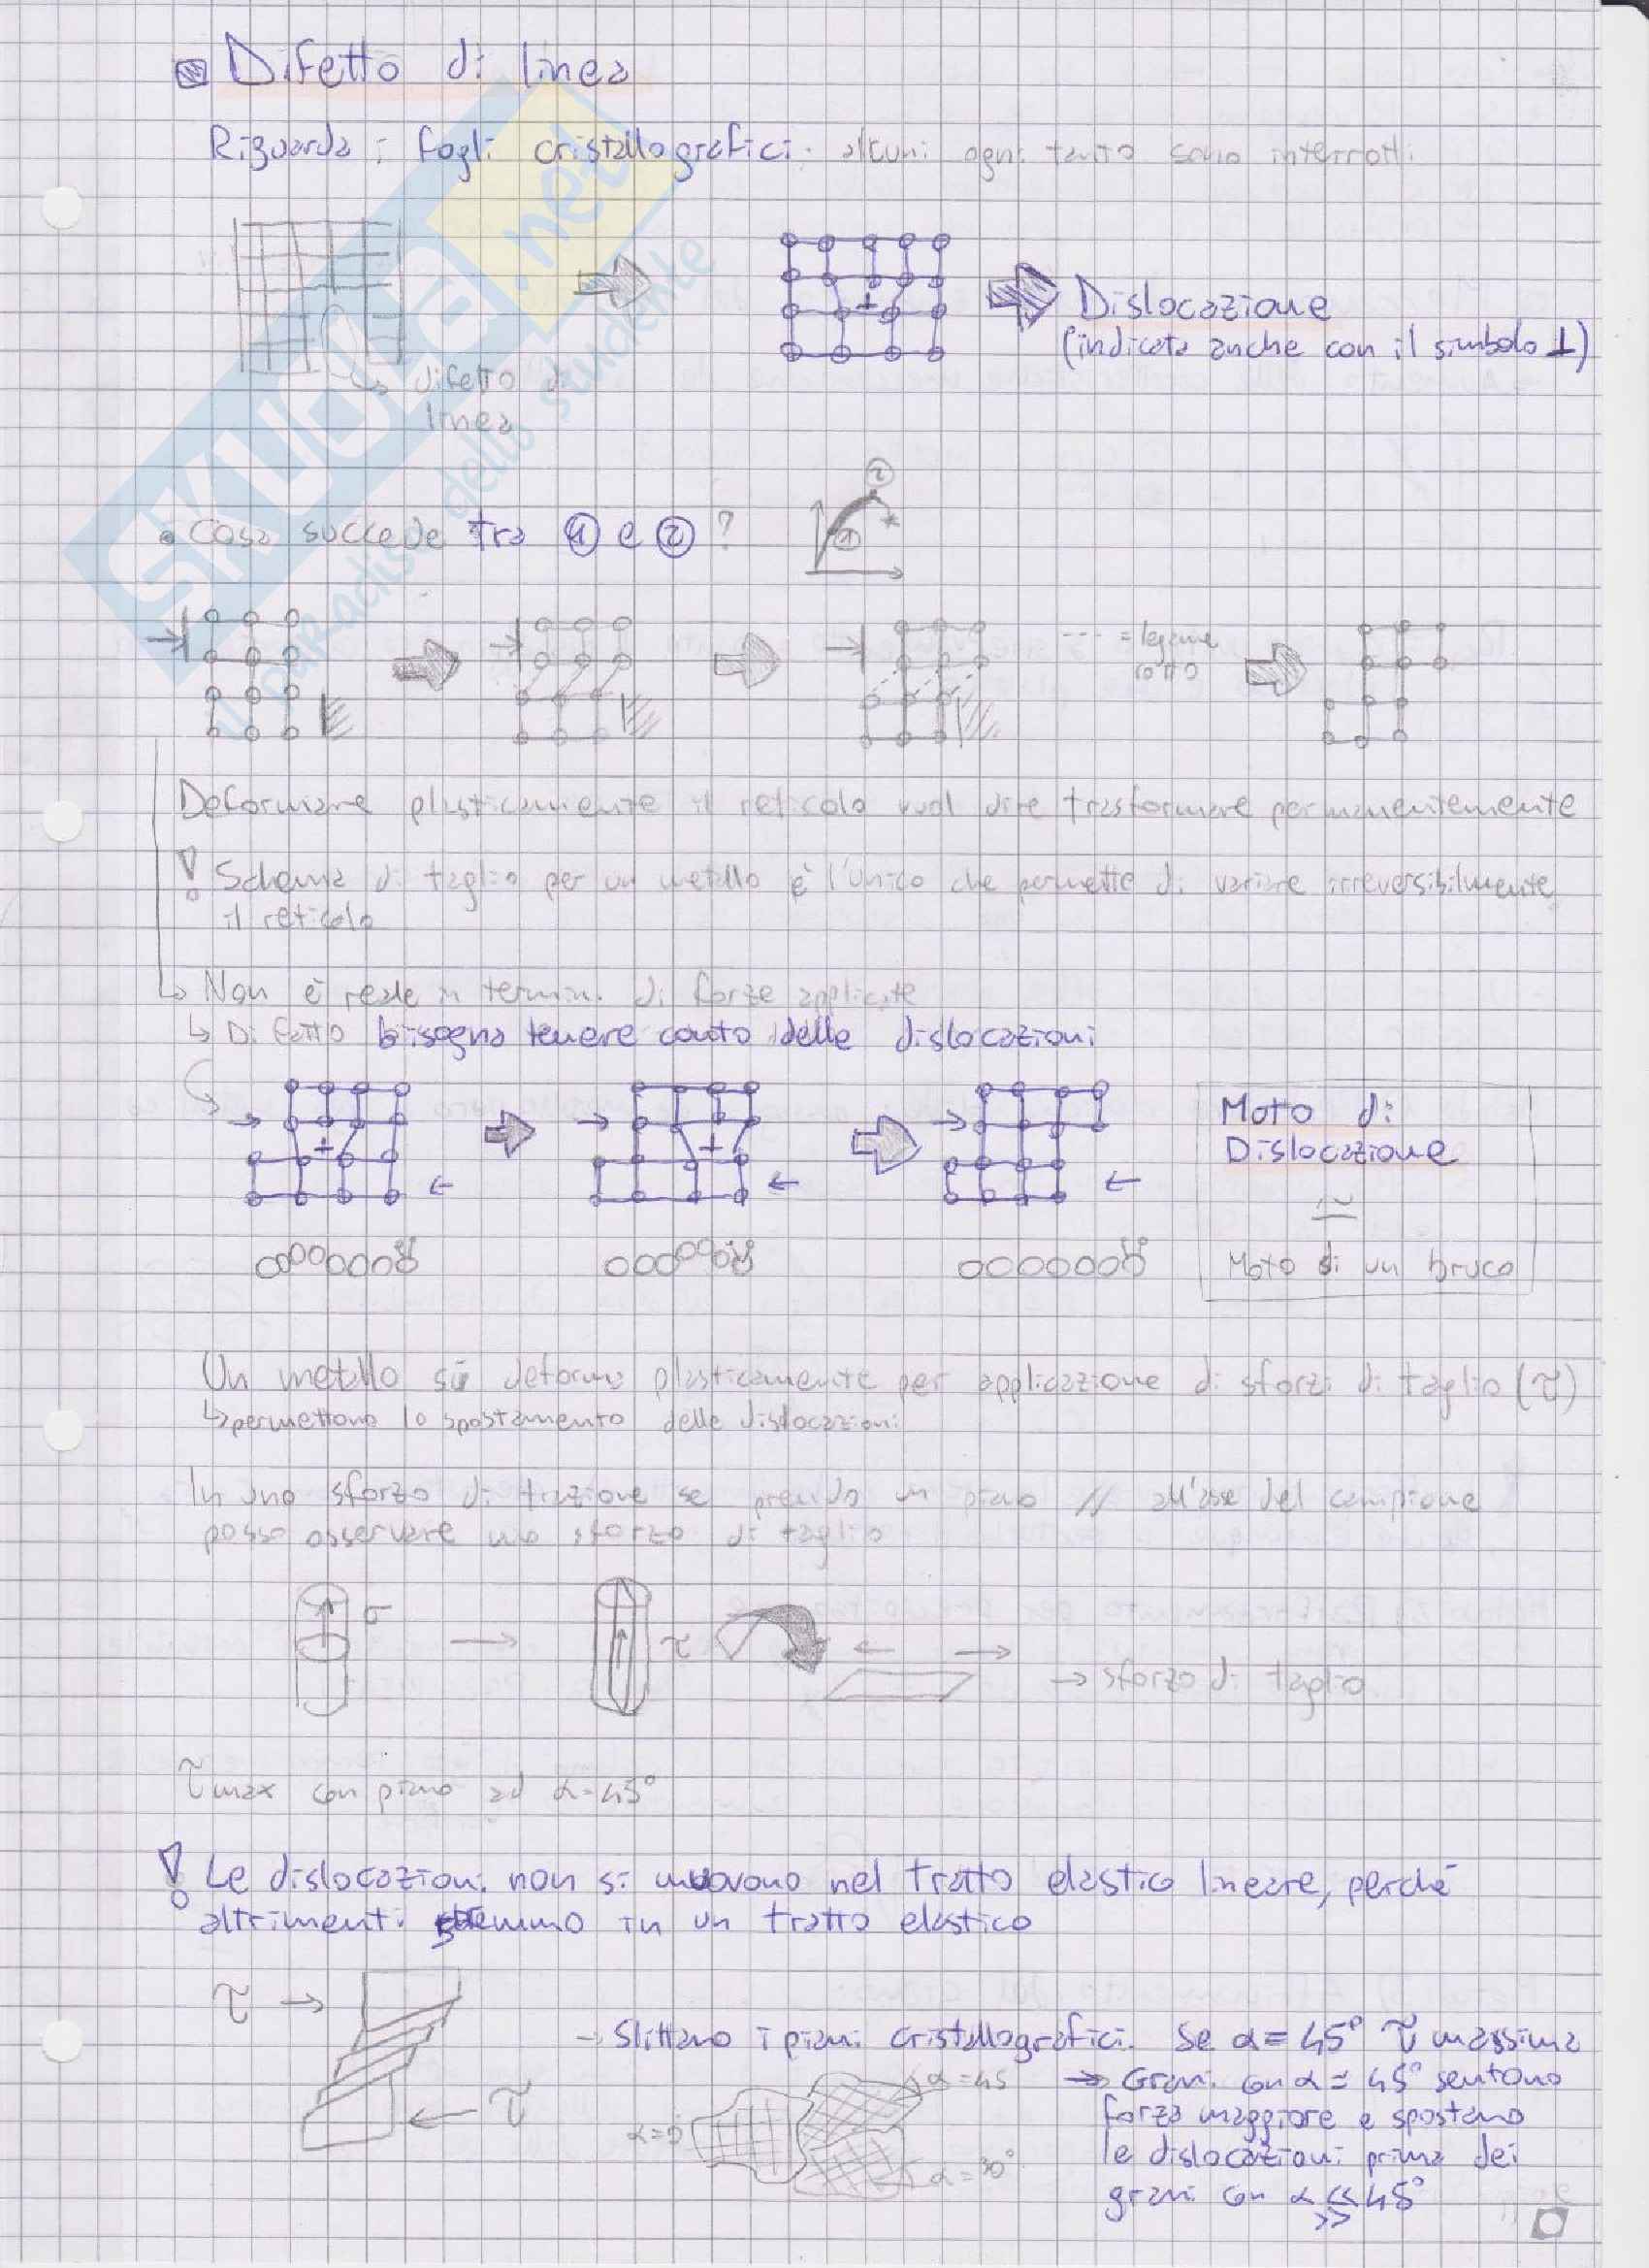 Difetto di linea
Riguarda i fogli cristallografici: alcuni ogni tanto sono interrotti.
difetto di
linea
⊥
Dislocazione
(indicata anche con il simbolo ⊥)
SKUOLA.net
il paradiso dello studente
• Cosa succede tra ① e ② ?
①
②
--- = legame
rotto
Deformare plasticamente il reticolo vuol dire trasformare permanentemente
! Schema di taglio per un metallo è l'unico che permette di variare irreversibilmente
il reticolo
↳ Non è reale in termini di forze applicate
↳ Di fatto bisogna tenere conto delle dislocazioni
⊥
⊥
Moto di
Dislocazione
≃
Moto di un bruco
Un metallo si deforma plasticamente per applicazione di sforzi di taglio (τ)
↳ permettono lo spostamento delle dislocazioni
In uno sforzo di trazione se prendo un piano // all'asse del campione
posso osservare uno sforzo di taglio
σ
τ
→ sforzo di taglio
τmax con piano ad α=45°
! Le dislocazioni non si muovono nel tratto elastico lineare, perché
altrimenti staremmo in un tratto elastico
τ →
← τ
→ Slittano i piani cristallografici. Se α = 45° τ massima
α=45
α=0
α=30°
→ Grani con α = 45° sentono
forza maggiore e spostano
le dislocazioni prima dei
grani con α ≪ 45°
≫